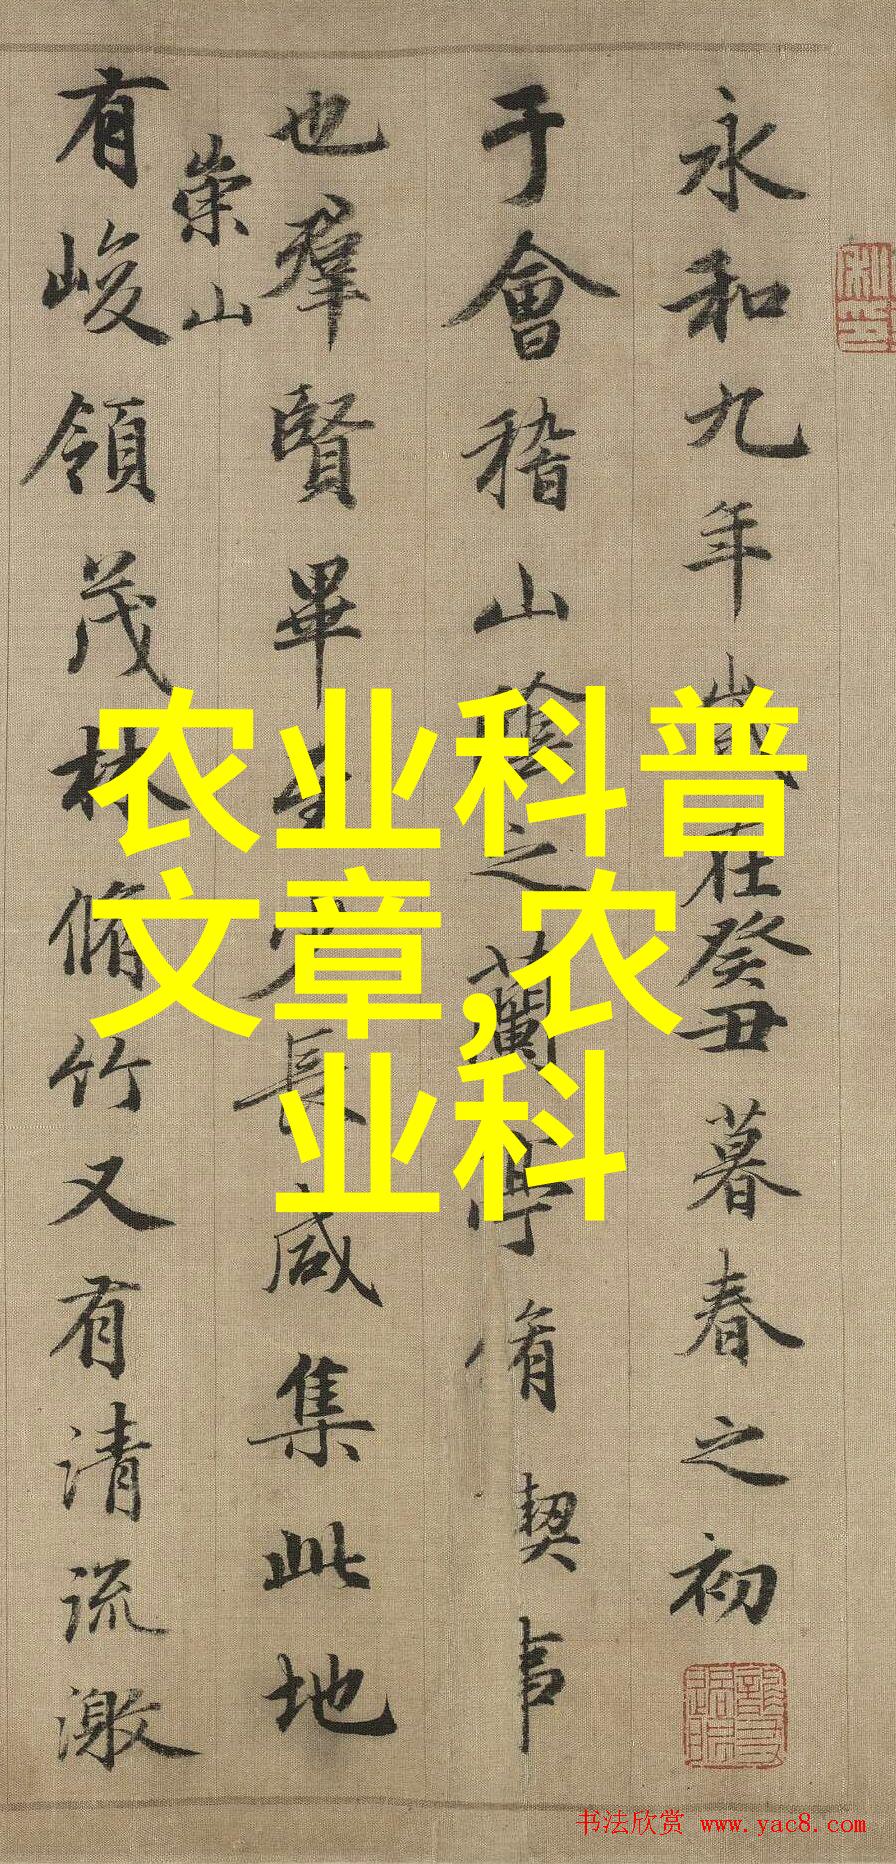 永和九年歲在癸丑暮春之初
于會稽山陰之蘭亭脩禊事
也羣賢畢至少長咸集此地
崇山
有峻領茂林脩竹又有清流激
农业科普
文章,农
业科
书法欣赏 www.yac8.com